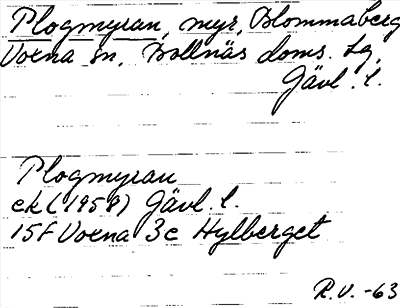 Plogmyran, myr, Blommaberg
Voxna sn, Bollnäs doms. tg,
Gävl. l.
Plogmyran
ek (1958) Gävl. l.
15F Voxna 3c Hylberget
R.V. -63